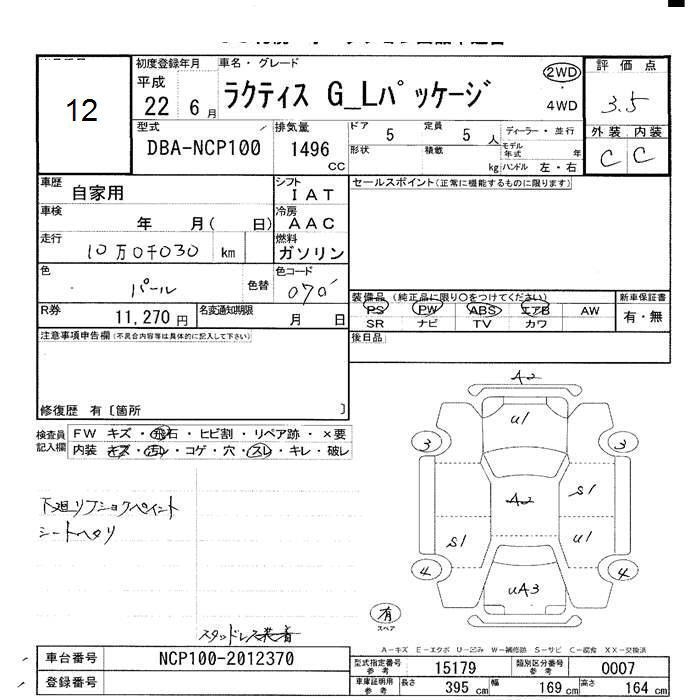 12
初度登録年月 車名・グレード
平成 22 6月 ラクティス G_Lパッケージ 2WD 4WD
評価点 3.5
外装 内装 C C
型式 DBA-NCP100
排気量 1496 CC
ドア 5 定員 5人
形状 積載 kg
ディーラー・並行
モデル年式 年
ハンドル 左・右
車歴 自家用
シフト IAT
セールスポイント(正常に機能するものに限ります)
車検 年 月( 日)
冷房 AAC
走行 10万0千030 km
燃料 ガソリン
色 パール 色替
色コード 070
装備品 (純正品に限り○をつけてください)
新車保証書
PS PW ABS エアB AW 有・無
SR ナビ TV カワ
R券 11,270円 名変通知期限 月 日
後日品
注意事項申告欄(不具合内容等は具体的に記入して下さい)
修復歴 有〔箇所 〕
検査員記入欄
FW キズ・飛石・ヒビ割・リペア跡・×要
内装 キズ・汚レ・コゲ・穴・スレ・キレ・破レ
A2
U1
3 3
A2
S1
S1
U1
4 4
UA3
有
スペア
シートヘタリ
A-キズ E-エクボ U-凹み W-補修跡 S-サビ C-腐食 XX-交換済
車台番号 NCP100-2012370
登録番号
型式指定番号 参考 15179 類別区分番号 参考 0007
車庫証明用 参考 長さ 395 cm 幅 169 cm 高さ 164 cm